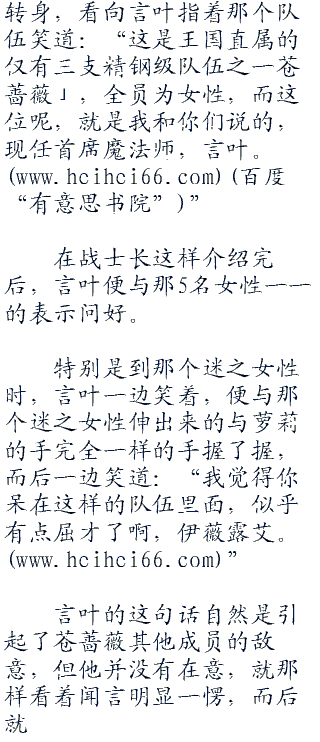 转身，看向言叶指着那个队
伍笑道：“这是王国直属的
仅有三支精钢级队伍之一苍
蔷薇」，全员为女性，而这
位呢，就是我和你们说的，
现任首席魔法师，言叶。
(www.hcihci66.com)(百度
“有意思书院”)”
在战士长这样介绍完
后，言叶便与那5名女性一一
的表示问好。
特别是到那个迷之女性
时，言叶一边笑着，便与那
个迷之女性伸出来的与萝莉
的手完全一样的手握了握，
而后一边笑道：“我觉得你
呆在这样的队伍里面，似乎
有点屈才了啊，伊薇露艾。
(www.hcihci66.com)”
言叶的这句话自然是引
起了苍蔷薇其他成员的敌
意，但他并没有在意，就那
样看着闻言明显一愣，而后
就